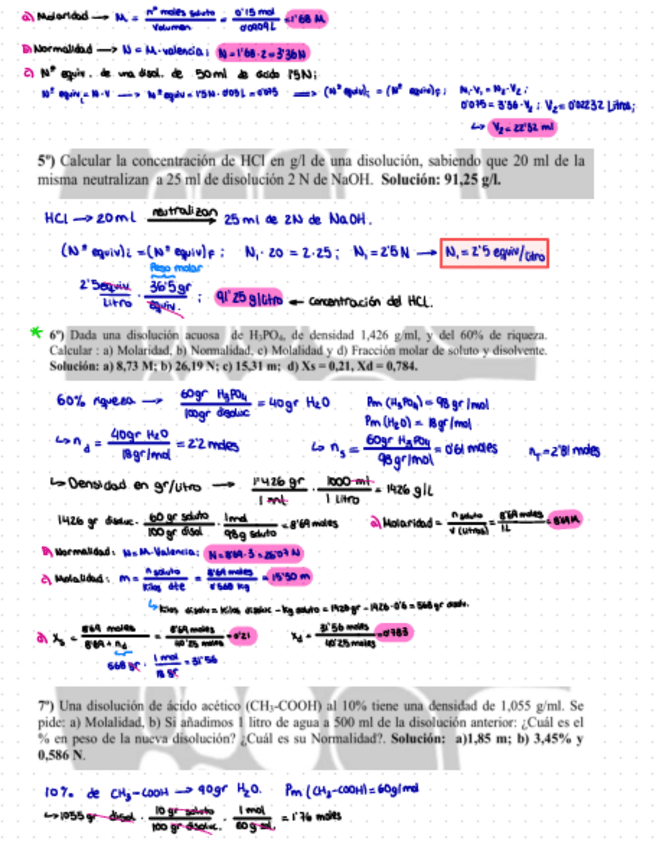 a) Molaridad → M = nº moles soluto / Volumen = 0'15 mol / 0'0909L = 1'68 M
b) Normalidad → N = M·valencia; N = 1'68·2 = 3'36N
c) Nº equiv. de una disol. de 50ml de ácido 1'5N;
Nº equiv = N·V → Nº equiv = 1'5N·0'05L = 0'075 ⇒ (Nº equiv)i = (Nº equiv)F; N₁·V₁ = N₂·V₂;
0'075 = 3'36·V₂; V₂ = 0'02232 Litros;
↳ V₂ = 22'32 ml
5º) Calcular la concentración de HCl en g/l de una disolución, sabiendo que 20 ml de la
misma neutralizan a 25 ml de disolución 2 N de NaOH. Solución: 91,25 g/l.
HCl → 20ml neutralizan 25 ml de 2N de NaOH.
(Nº equiv)i = (Nº equiv)F; N₁·20 = 2·25; N₁ = 2'5N → N₁ = 2'5 equiv/litro
Peso molar
2'5equiv / Litro · 36'5gr / equiv. ; 91'25 g/litro ← concentración del HCl.
* 6º) Dada una disolución acuosa de H₃PO₄, de densidad 1,426 g/ml, y del 60% de riqueza.
Calcular : a) Molaridad, b) Normalidad, c) Molalidad y d) Fracción molar de soluto y disolvente.
Solución: a) 8,73 M; b) 26,19 N; c) 15,31 m; d) Xs = 0,21, Xd = 0,784.
60% riqueza → 60gr H₃PO₄ / 100gr disoluc = 40gr H₂O Pm (H₃PO₄) = 98 gr/mol
Pm (H₂O) = 18gr/mol
↳ nd = 40gr H₂O / 18gr/mol = 2'2 moles ↳ ns = 60gr H₃PO₄ / 98 gr/mol = 0'61 moles nT = 2'81 moles
↳ Densidad en gr/litro → 1'426 gr / 1 ml · 1000 ml / 1 Litro = 1426 g/L
1426 gr disoluc · 60 gr soluto / 100 gr disol · 1mol / 98g soluto = 8'69 moles a) Molaridad = n soluto / V (litros) = 8'69 moles / 1L = 8'69M
b) Normalidad: N = M·Valencia; N = 8'69·3 = 26'07 N
c) Molalidad: m = n soluto / Kilos dte = 8'69 moles / 0'568 Kg = 15'30 m
↳ Kilos disolv = Kilos disoluc - Kg soluto = 1426 gr - 1426·0'6 = 568 gr disolv.
d) Xs = 8'69 moles / 8'69 + nd = 8'69 moles / 40'25 moles = 0'21 Xd = 31'56 moles / 40'25 moles = 0'783
568 gr · 1 mol / 18 gr = 31'56
7º) Una disolución de ácido acético (CH₃-COOH) al 10% tiene una densidad de 1,055 g/ml. Se
pide: a) Molalidad, b) Si añadimos 1 litro de agua a 500 ml de la disolución anterior: ¿Cuál es el
% en peso de la nueva disolución? ¿Cuál es su Normalidad?. Solución: a)1,85 m; b) 3,45% y
0,586 N.
10% de CH₃-COOH → 90gr H₂O. Pm (CH₃-COOH) = 60g/mol
↳ 1055 gr disol · 10 gr soluto / 100 gr disoluc. · 1 mol / 60 g sol. = 1'76 moles